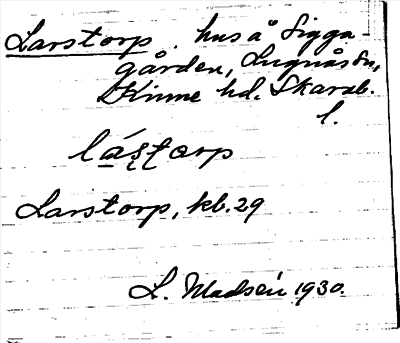 Larstorp. hus å Sigga-
gården, Lugnås sn,
Kinne hd. Skarab.
l.
lástorp
Larstorp, kb. 29
L. Madsén 1930.